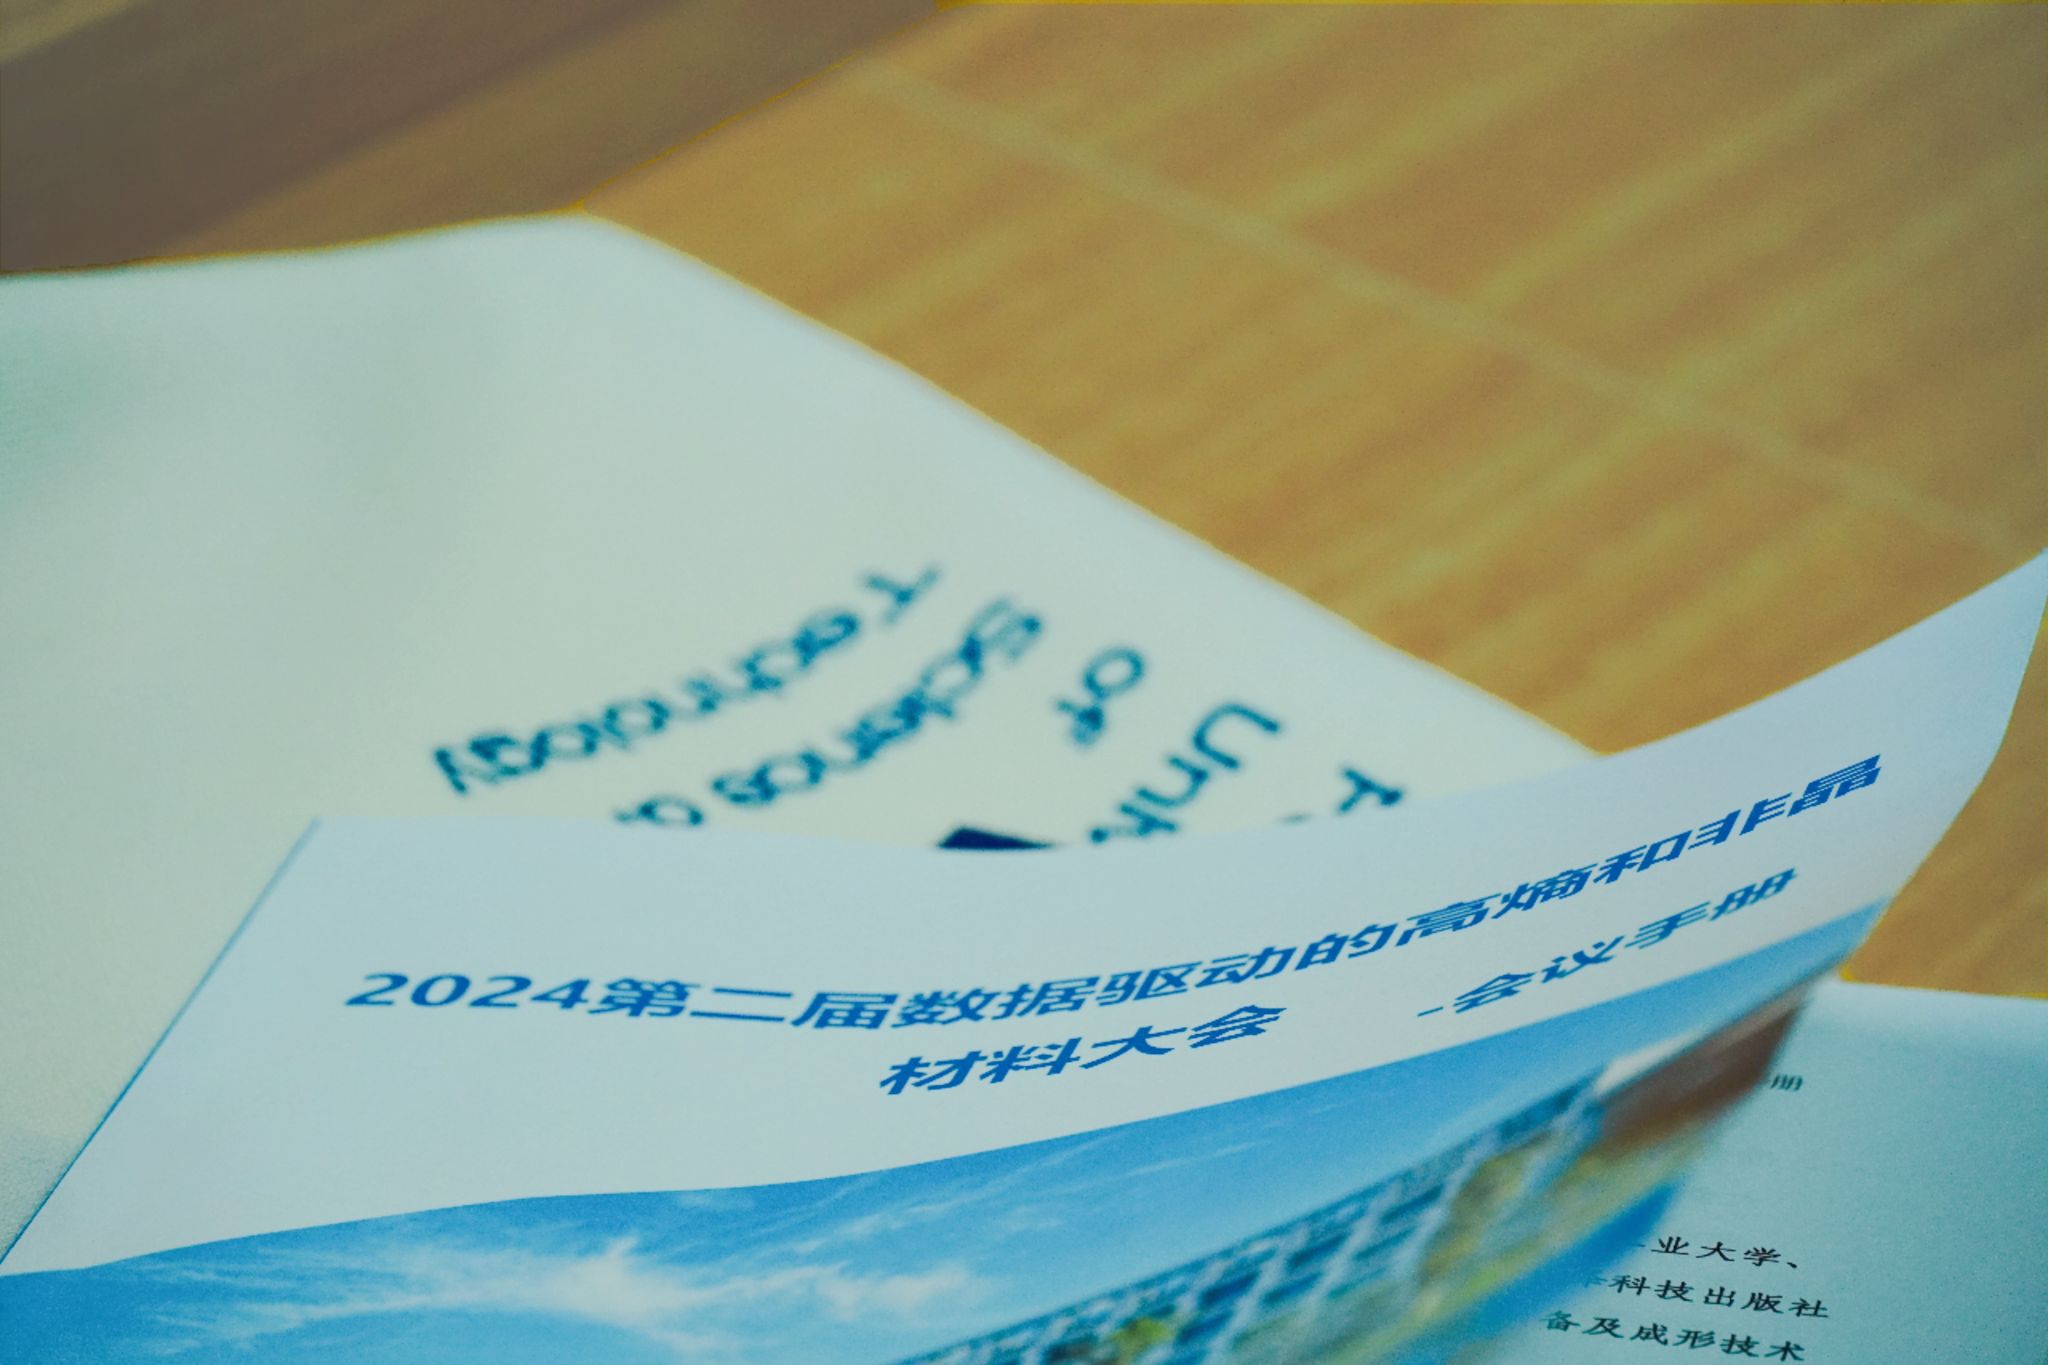 Technology
Science
of
2024第二届数据驱动的高熵和非晶
材料大会 -会议手册
册
业大学、
科技出版社
备及成形技术